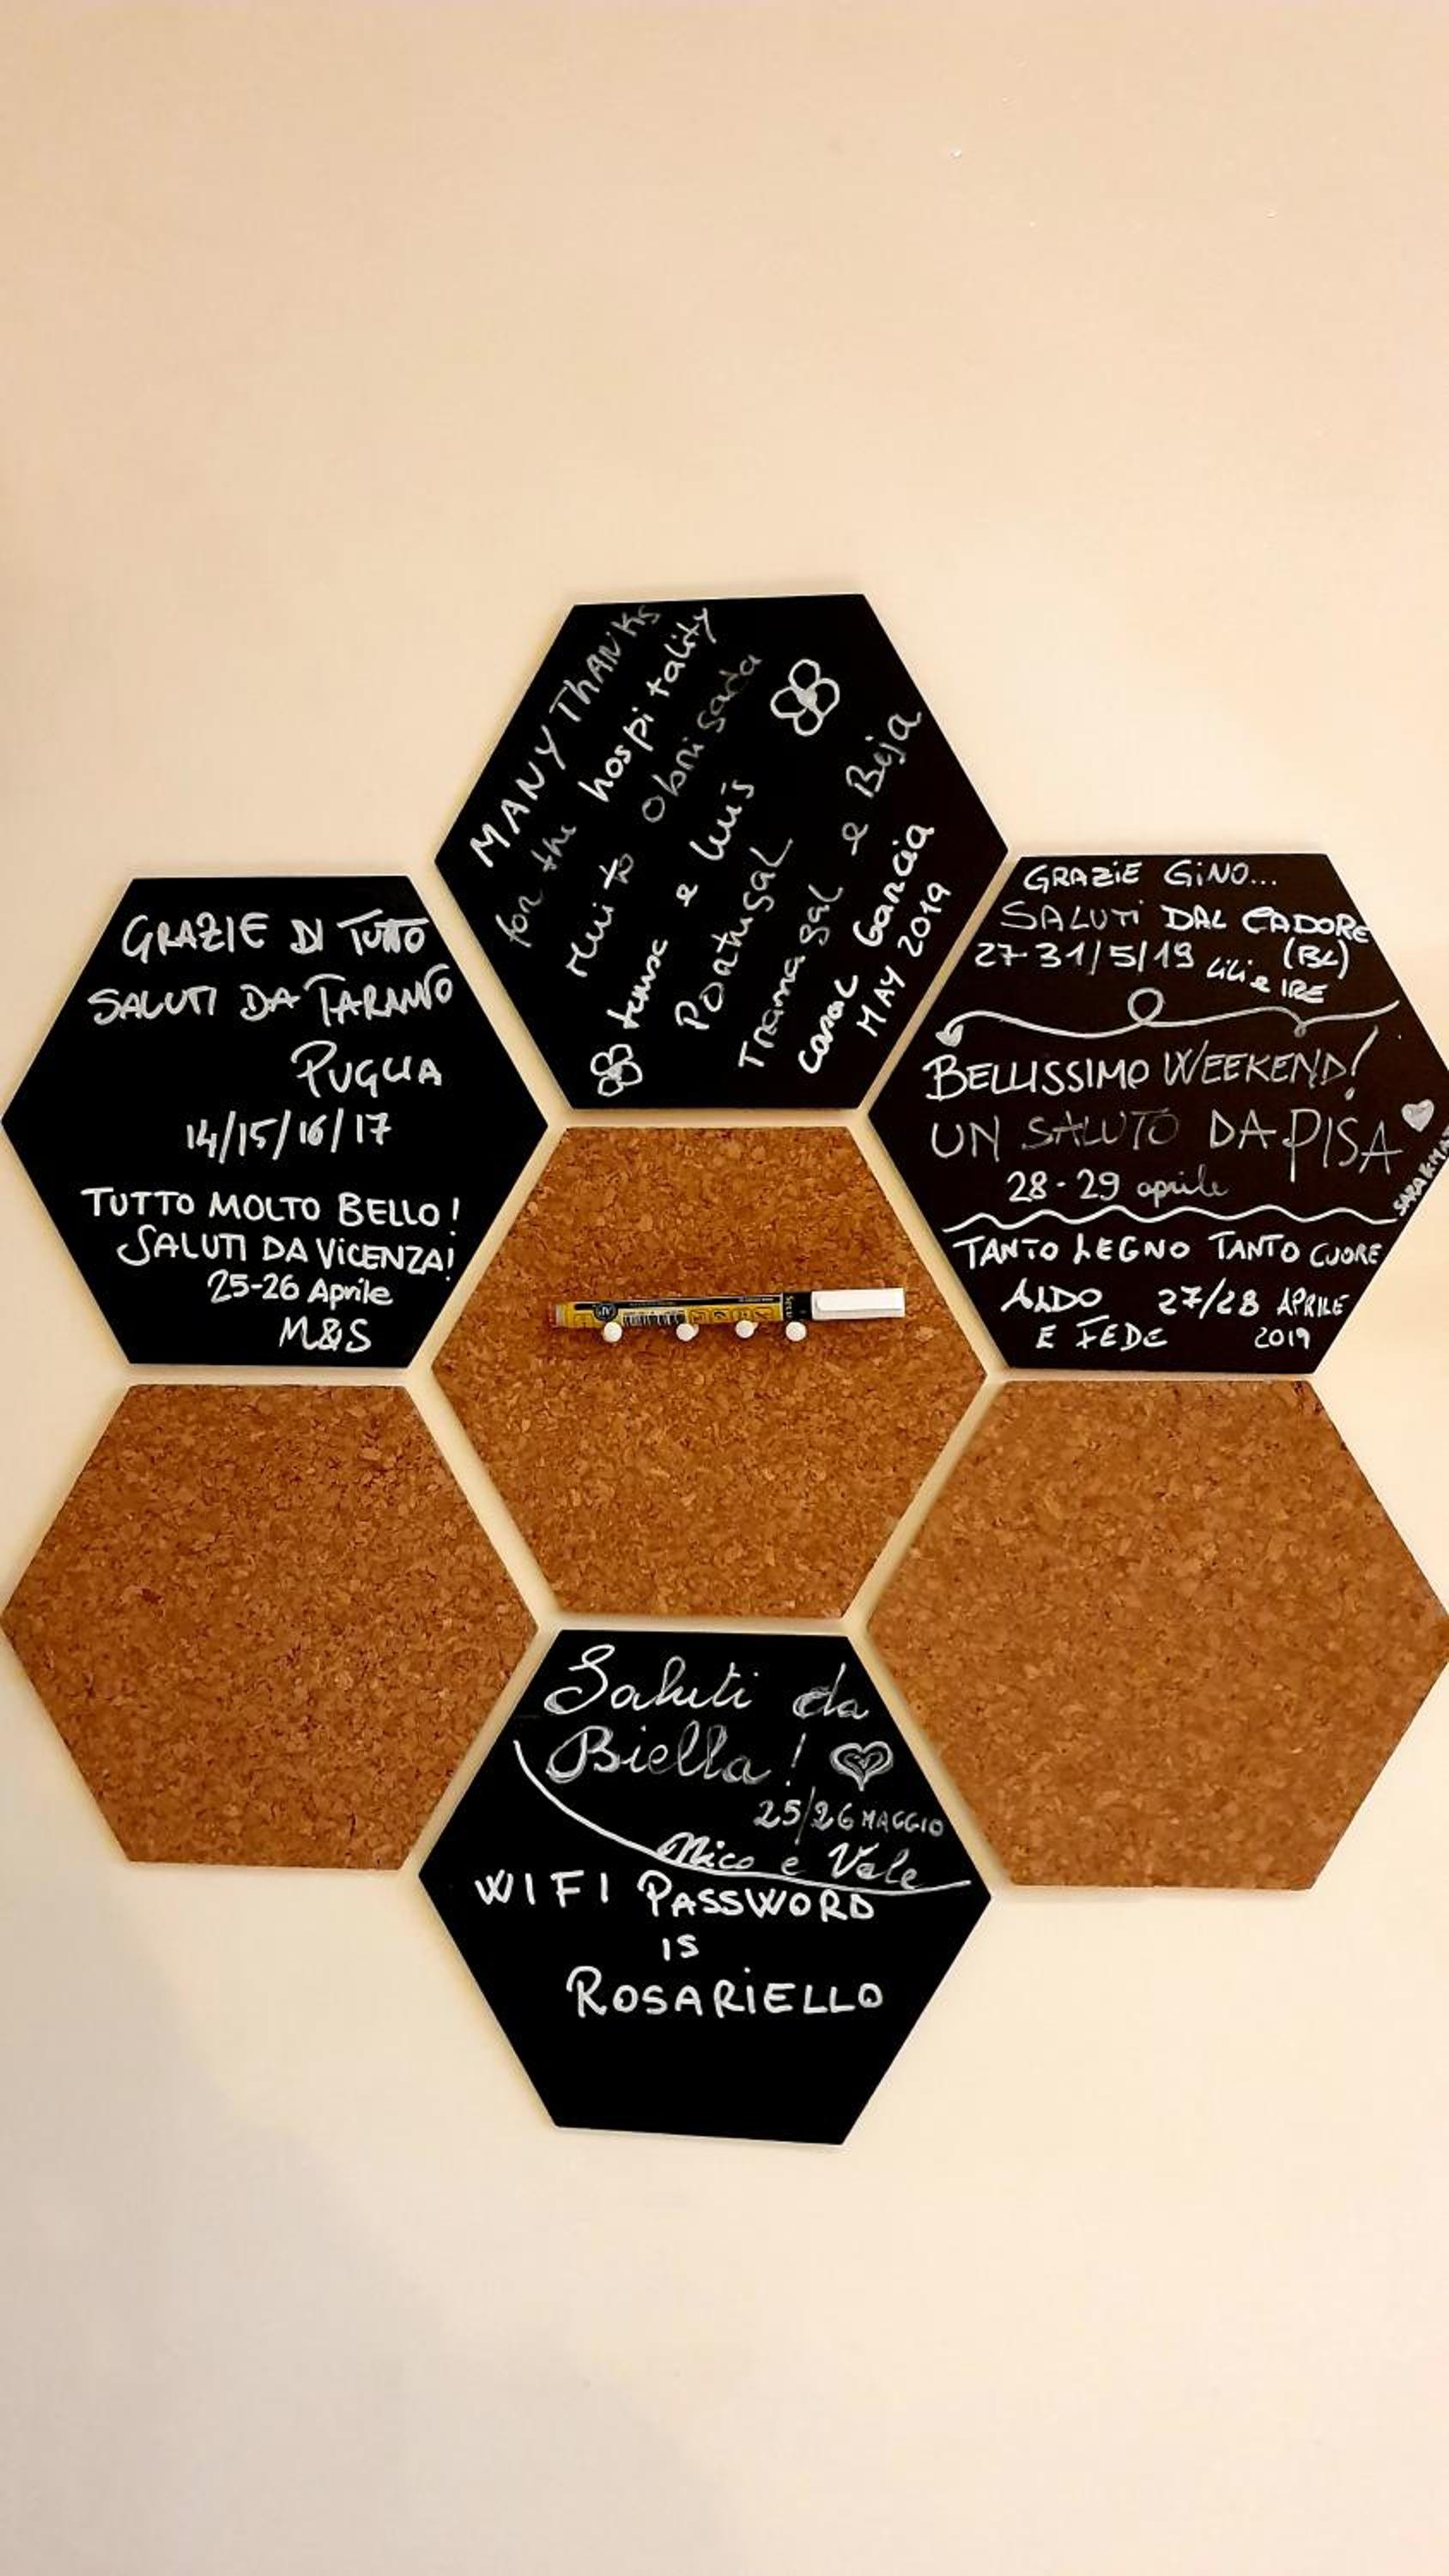 MANY ThANKS
for the hospitality
Muito Obrigada
e Luís
Portugal
Tramagal e Beja
Carol Garcia
MAY 2019
GRAZIE DI TUTTO
SALUTI DA TARANTO
PUGLIA
14/15/16/17
TUTTO MOLTO BELLO!
SALUTI DA ViCENZA!
25-26 Aprile
M&S
GRAZiE GiNO...
SALUTi DAL CADORE
27-31/5/19 (BL)
Lili e IRE
BELLISSIMO WEEKEND!
UN SALUTO DA PISA
28-29 aprile
TANTO LEGNO TANTO CUORE
ALDO 27/28 APRILE
E FEDE 2019
Saluti da
Biella!
25/26 MAGGIO
Nico e Vale
WIFI PASSWORD
IS
ROSARiELLO